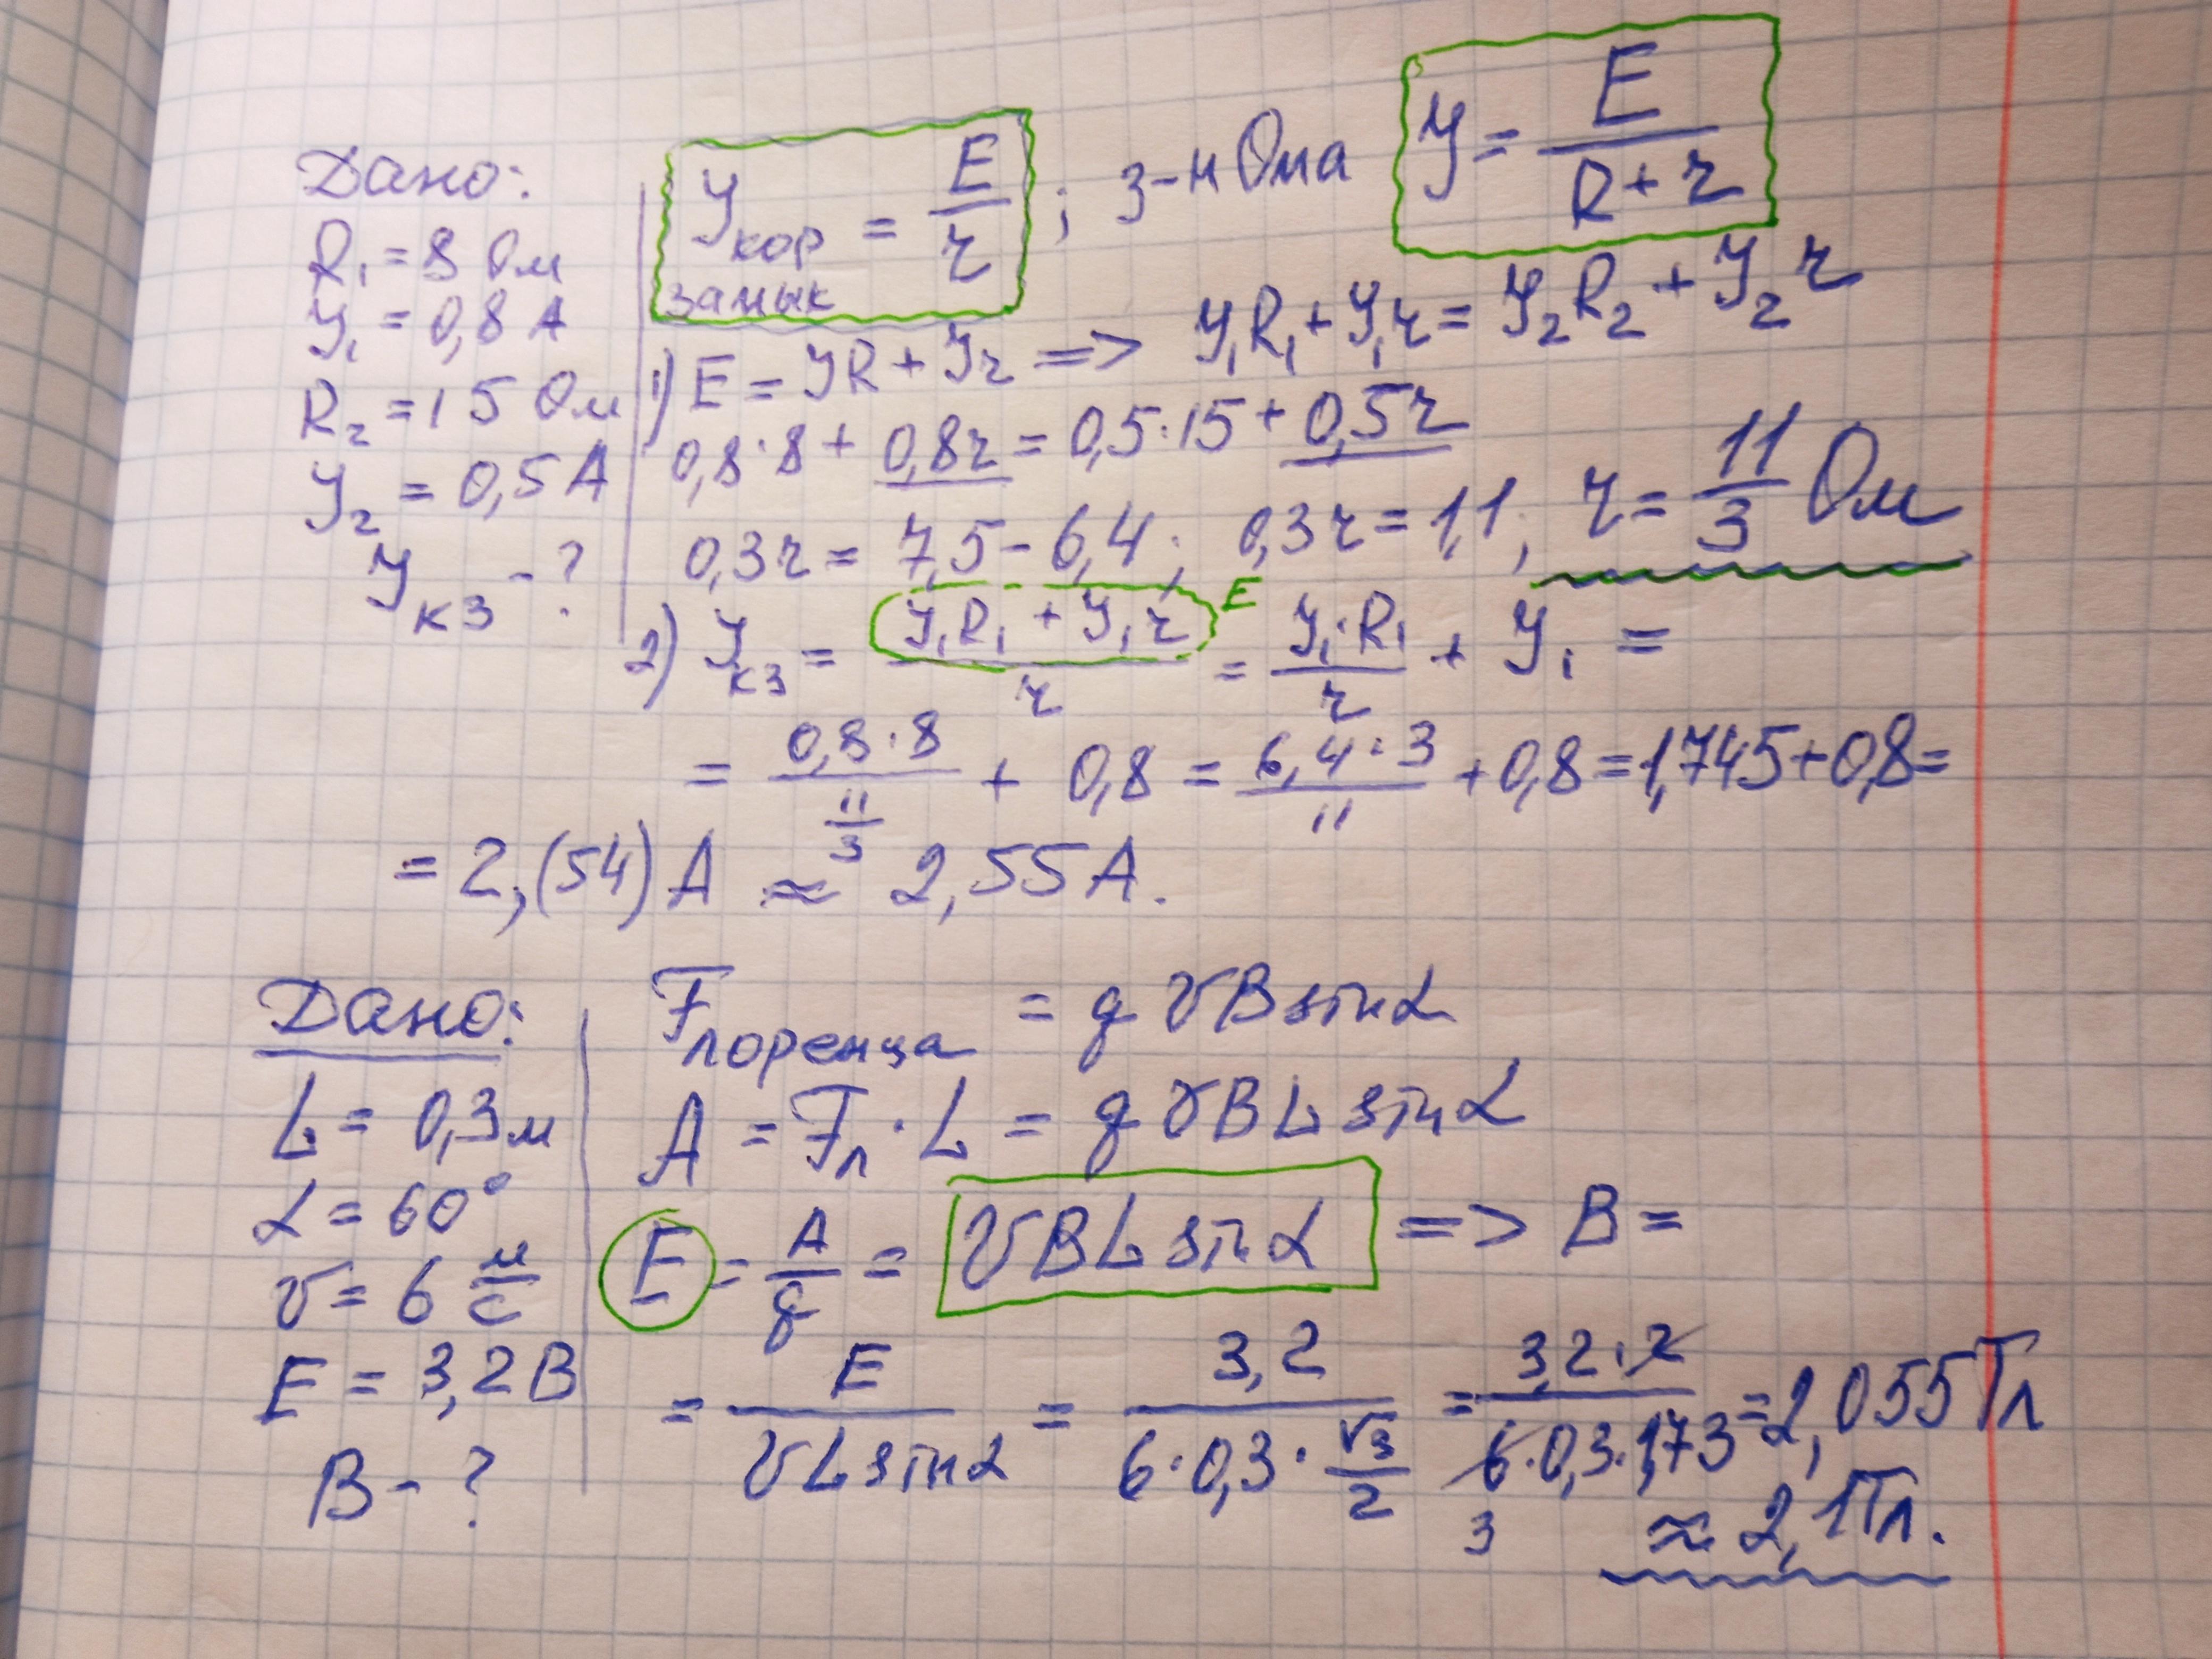 Дано:
R₁ = 8 Ом
У₁ = 0,8 А
R₂ = 15 Ом
У₂ = 0,5 А
Укз - ?
Укор замык = E/r ; з-н Ома У = E/(R + r)
1) E = УR + Уr => У₁R₁ + У₁r = У₂R₂ + У₂r
0,8·8 + 0,8r = 0,5·15 + 0,5r
0,3r = 7,5 - 6,4; 0,3r = 1,1; r = 11/3 Ом
2) Укз = (У₁R₁ + У₁r)/r = (У₁·R₁)/r + У₁ =
E
= (0,8·8)/(11/3) + 0,8 = (6,4·3)/11 + 0,8 = 1,745 + 0,8 =
= 2,(54) А ≈ 2,55 А.
Дано:
L = 0,3 м
α = 60°
v = 6 м/с
E = 3,2 В
B - ?
Fлоренца = q v B sin α
A = Fл · L = q v B L sin α
E = A/q = v B L sin α => B =
= E/(v L sin α) = 3,2/(6·0,3·√3/2) = (3,2·2)/(6·0,3·1,73) = 2,055 Тл
3
≈ 2,1 Тл.